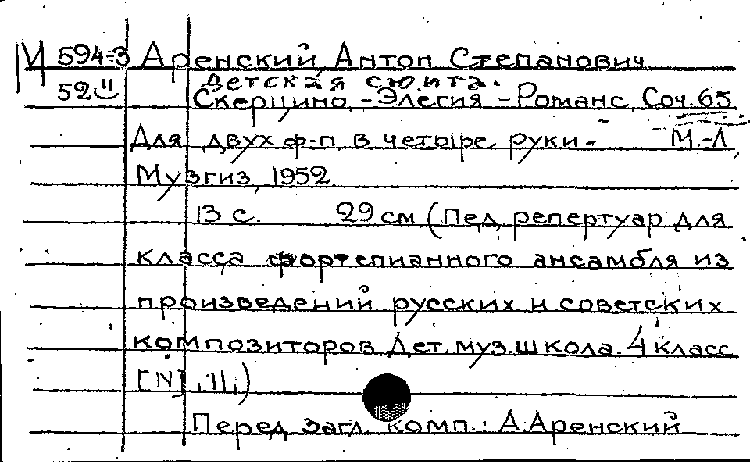 И 594-3 Аренский Антон Степанович
52 II Детская сюита.
Скерцино, - Элегия - Романс, Соч. 65
Для двух ф-п. в четыре руки. - М.-Л.
Музгиз, 1952
13 с. 29 см (Пед. репертуар для
класса фортепианного ансамбля из
произведений русских и советских
композиторов. Дет. муз. школа. 4 класс
[N] 11,)
Перед загл. комп.: А. Аренский